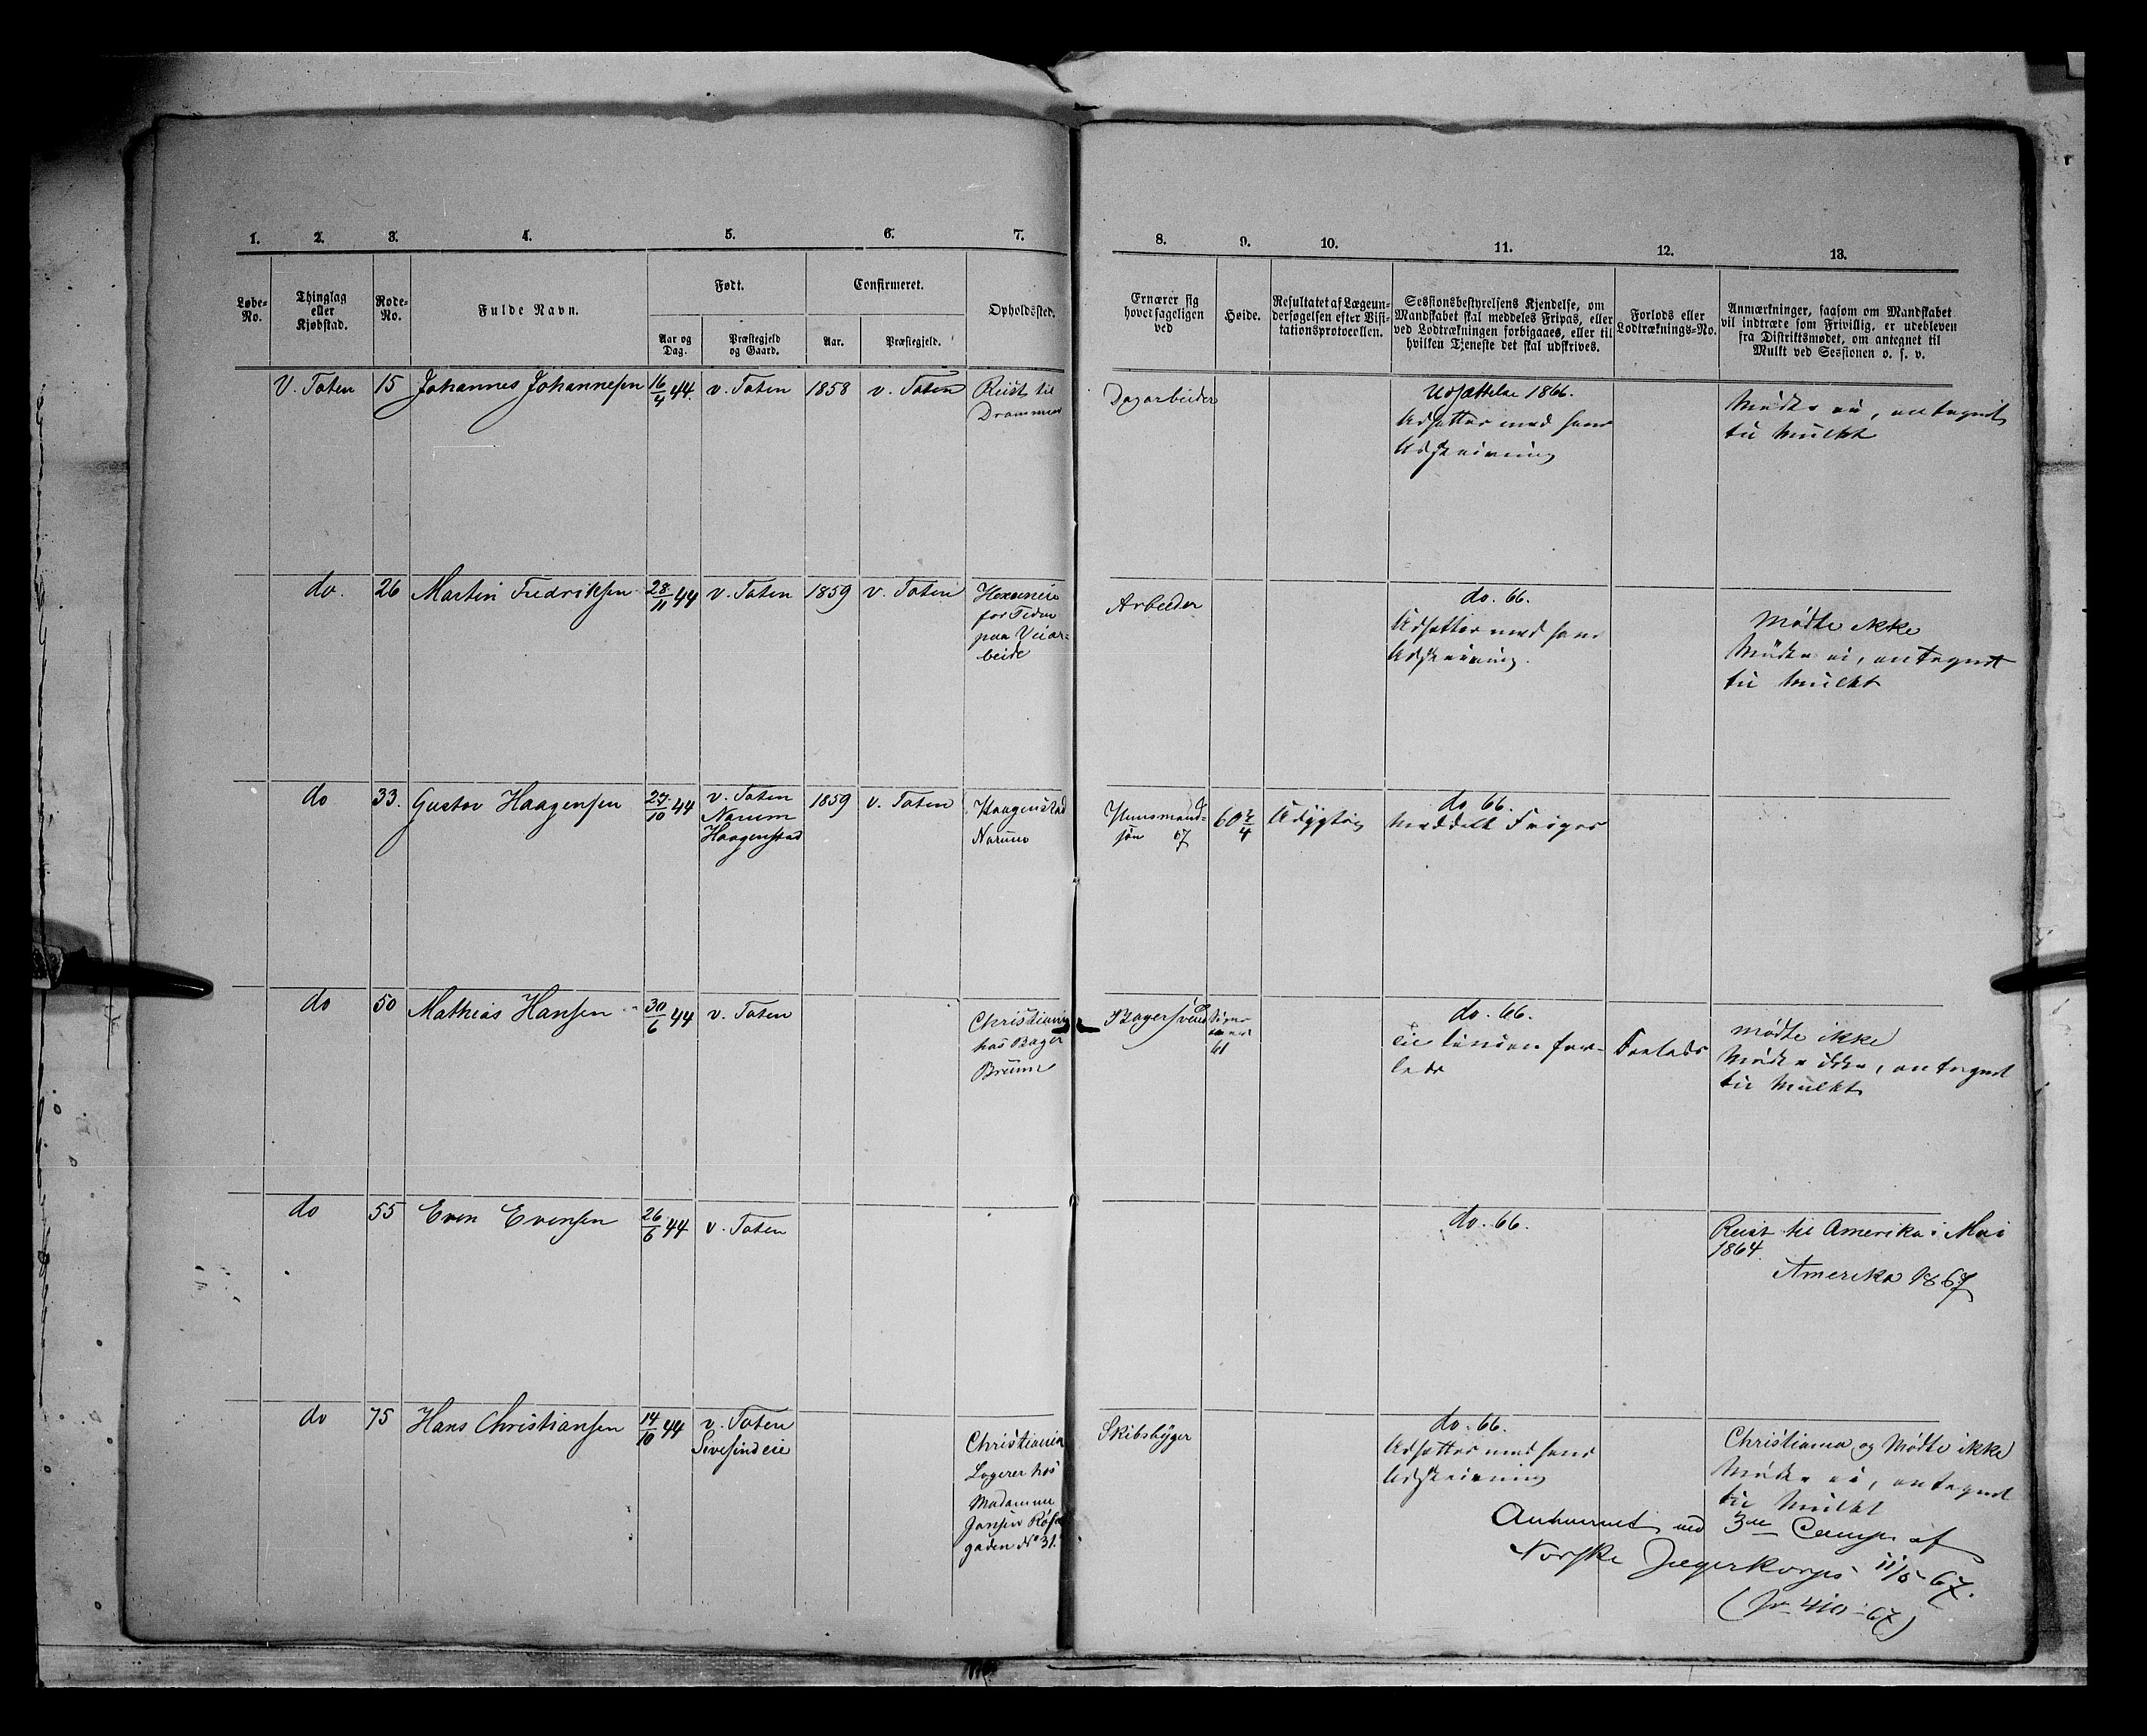 1. 2. 3. 4. 5. 6. 7.
Løbe-
No.
Thinglag
eller
Kjøbstad.
Rode-
No.
Fulde Navn.
Født.
Aar og
Dag.
Præstegjeld
og Gaard.
Confirmeret.
Aar.
Præstegjeld.
Opholdssted.
V. Toten 15 Johannes Johannesen 16/4 44. v. Toten 1858 v. Toten Reist til
Drammen
do. 26 Martin Fredriksen 28/11 44 v. Toten 1859 v. Toten
for Tiden
paa Veiar-
beide
do 33. Gustav Haagensen 27/10 44 v. Toten 1859 v. Toten Haagenstad
Narum
Haagenstad
Narum
do 50 Mathias Hansen 30/6 44 v. Toten Christiania
hos Bager
Bruun
do 55 Even Evensen 26/6 44 v. Toten
do 75 Hans Christiansen 14/10 44 v. Toten
Sivesindeie
Christiania
Logerer hos
Madamme
Jansen
gaden No 31.
8. 9. 10. 11. 12. 13.
Ernærer sig
hovedsageligen
ved
Høide.
Resultatet af Lægeun-
dersøgelsen efter Visi-
tationsprotocollen.
Sessionsbestyrelsens Kjendelse, om
Mandskabet skal meddeles Fripas, eller
ved Lodtrækningen forbigaaes, eller til
hvilken Tjeneste det skal udskrives.
Forlods eller
Lodtræknings-No.
Anmærkninger, saasom om Mandskabet
vil indtræde som Frivillig, er udebleven
fra Distriktsmødet, om antegnet til
Mulkt ved Sessionen o. s. v.
Dagarbeider
Udsættelse 1866.
Udsættes med hans
Udskrivning
Mødte ei, antegnet
til Mulkt
Arbeider
do. 66.
Udsættes med hans
Udskrivning.
Mødte ikke
Mødte ei, antegnet
til Mulkt
Huusmands-
søn 67
60 3/4 Udygtig
do 66.
Meddelt Fripas
Bagersvend
61
do. 66.
Til Linien for-
lods
Forlods
mødte ikke
Mødte ikke, antegnet
til Mulkt
do. 66.
Reist til Amerika i Mai
1864.
Amerika 1867
Skibsbyger
do. 66.
Udsættes med hans
Udskrivning
Christiania og Mødte ikke
Mødte ei, antegnet
til Mulkt
Anhvervet ved 3die Comp. af
Norske Jægerkorps 11/5 67.
(Jr 410-67)